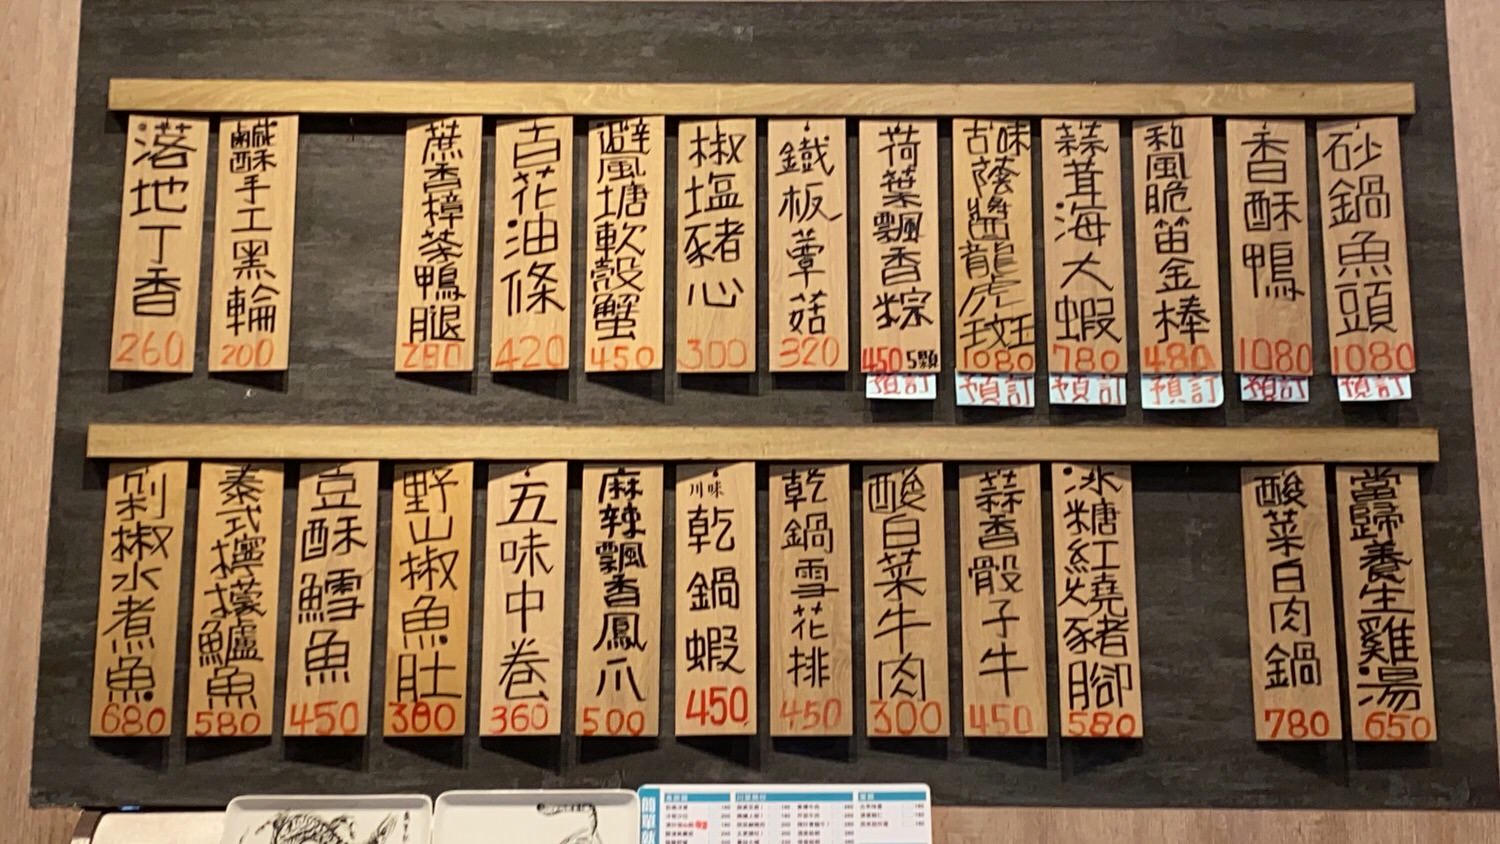 落地丁香
260
鹹酥手工黑輪
200
蔗香樟茶鴨腿
280
百花油條
420
避風塘軟殼蟹
450
椒塩豬心
300
鐵板蕈菇
320
荷葉飄香粽
450 5顆
預訂
古味蔭醬龍虎斑
1080
預訂
蒜茸海大蝦
780
預訂
和風脆笛金棒
480
預訂
香酥鴨
1080
預訂
砂鍋魚頭
1080
預訂
剁椒水煮魚
680
泰式檸檬鱸魚
580
豆酥鱈魚
450
野山椒魚肚
380
五味中卷
360
麻辣飄香鳳爪
500
川味
乾鍋蝦
450
乾鍋雪花排
450
酸白菜牛肉
300
蒜香骰子牛
450
冰糖紅燒豬腳
580
酸菜白肉鍋
780
當歸養生雞湯
650